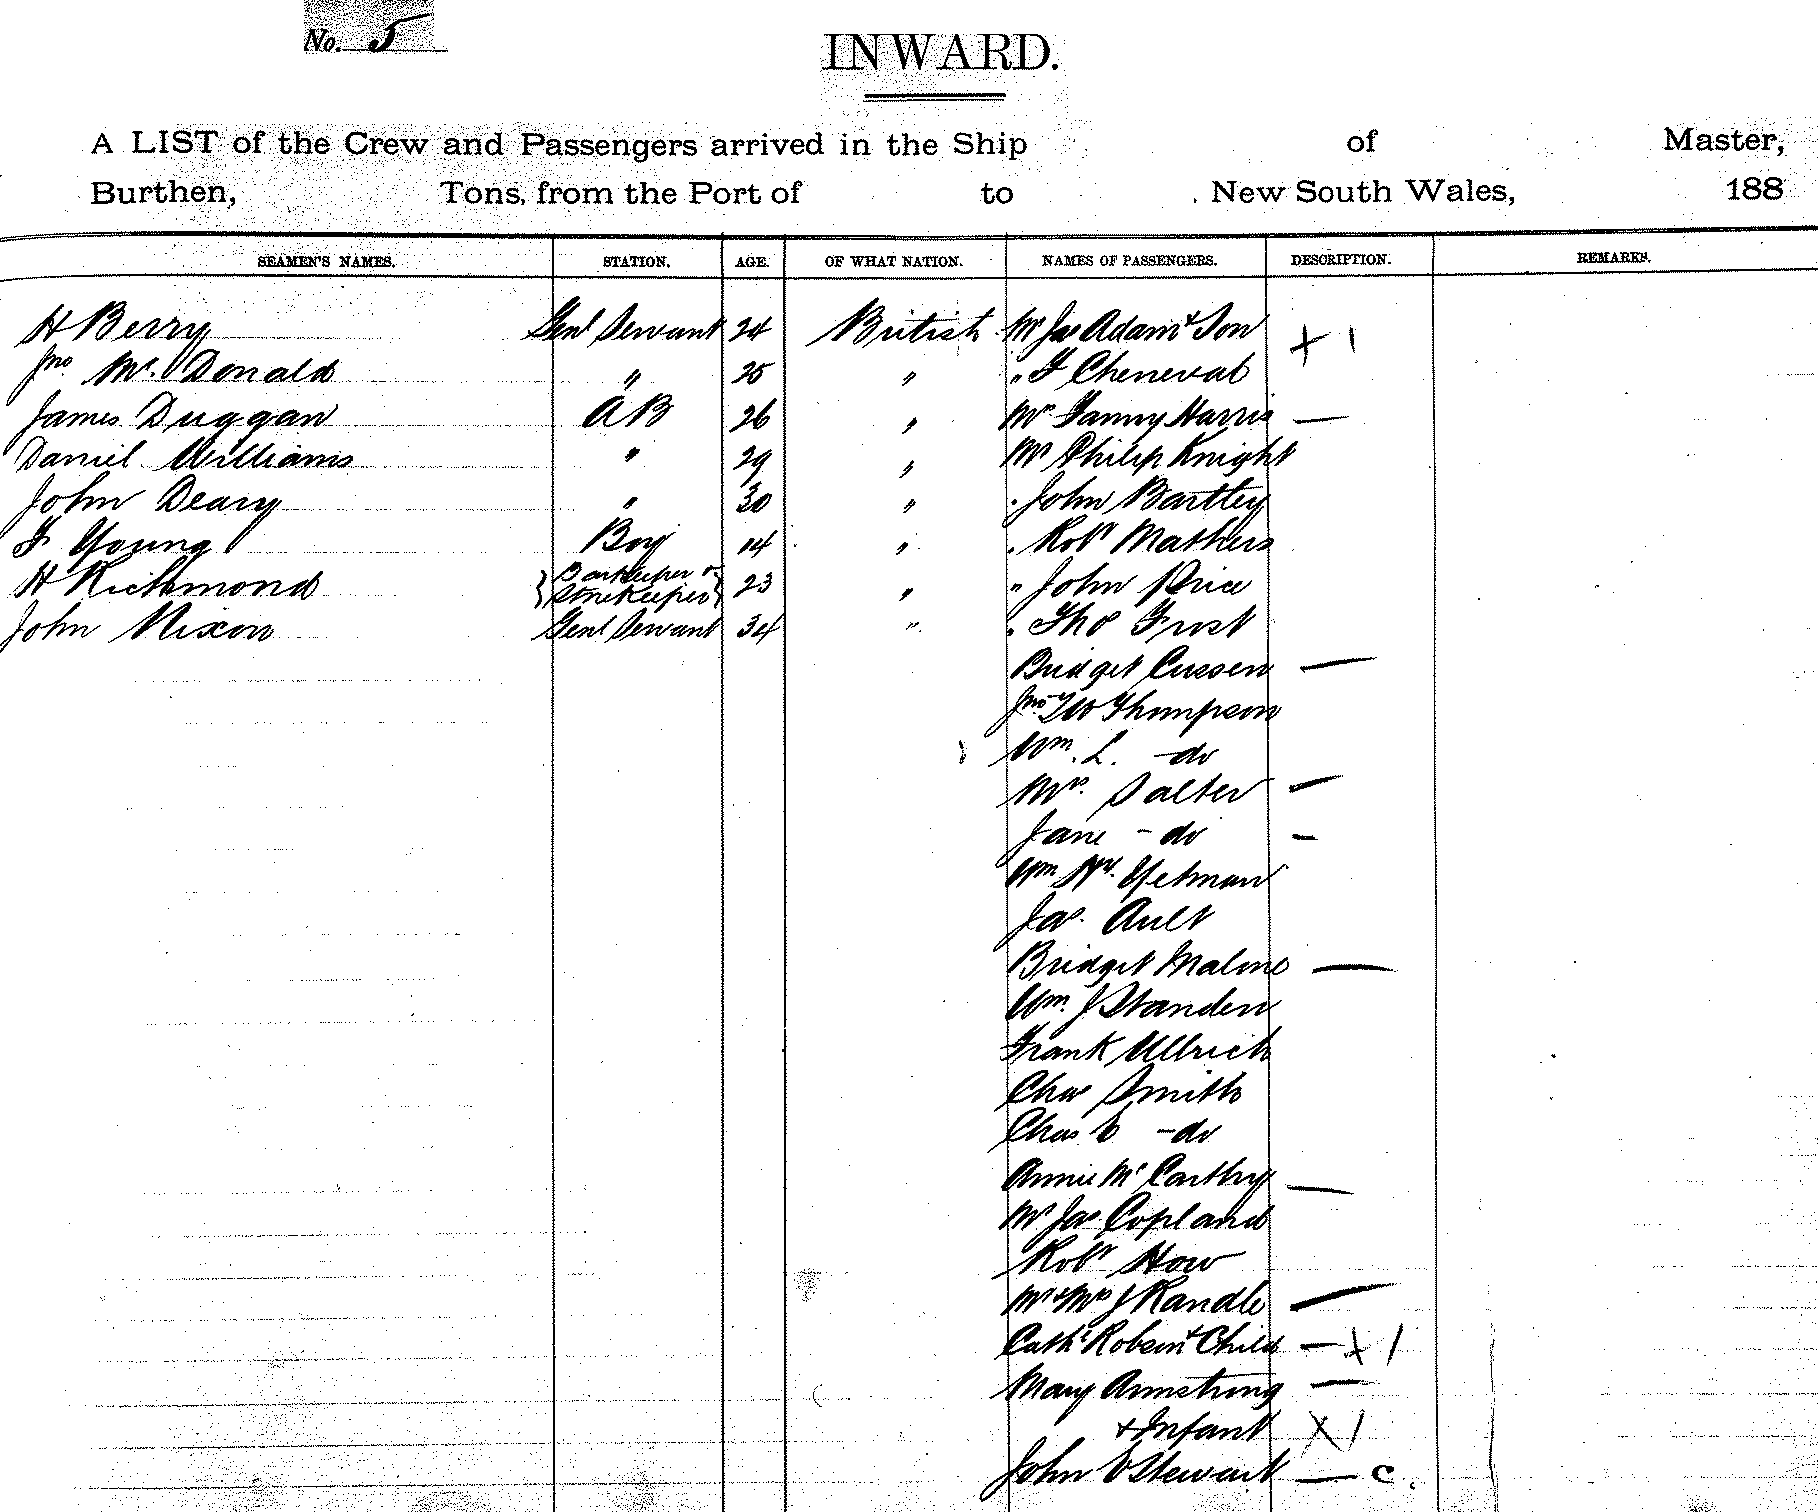 No. 5
INWARD.
A LIST of the Crew and Passengers arrived in the Ship of Master,
Burthen, Tons, from the Port of to New South Wales, 188
SEAMEN'S NAMES. STATION. AGE. OF WHAT NATION. NAMES OF PASSENGERS. DESCRIPTION. REMARKS.
H Berry Genl Servant 24 British Mr Jas Adam + Son + 1
Jno Mc. Donald " 25 " " F Cheneval
James Duggan AB 26 " Mrs Fanny Harris —
Daniel Williams " 29 " Mr Philip Knight
John Deary " 30 " " John Bartley
F Young Boy 14 " " Robt Mathers
H Richmond Barkeeper & Storekeeper 23 " " John Price
John Nixon Genl Servant 34 " " Thos Frost
Bridget Cussen —
Jno Thompson
Wm. L. - do
Mrs. Salter —
Jane - do —
Wm Hy. Yetman
Jas. Ault
Bridget Malone —
Wm. J Standen
Frank Ullrich
Chas Smith
Chas E - do
Annie McCarthy —
Mr Jas Copland
Robt How
Mr & Mrs J Randle —
Cathe Robson + Child — + 1
Mary Armstrong —
+ Infant X 1
John E Stewart — c.